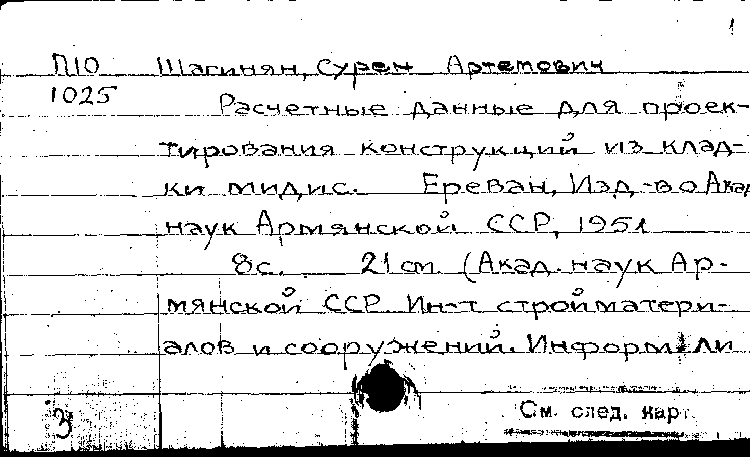 1
П10 Шагинян, Сурен Артемович
1025 Расчетные данные для проек-
тирования конструкций из клад-
ки мидис. Ереван, Изд-во Акад
наук Армянской ССР, 1951
8с. 21 см. (Акад. наук Ар-
мянской ССР. Ин-т стройматери-
алов и сооружений. Информ. ли
З
См. след. карт.